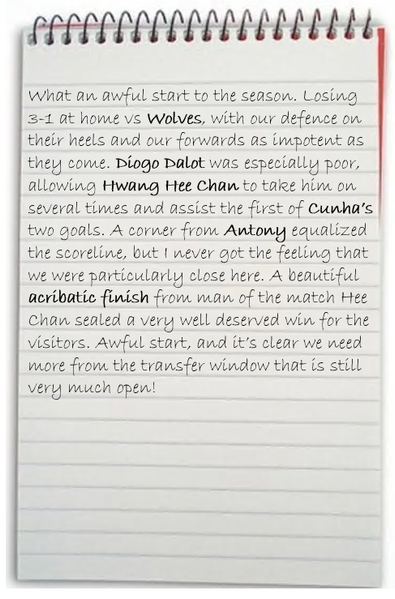 What an awful start to the season. Losing
3-1 at home vs Wolves, with our defence on
their heels and our forwards as impotent as
they come. Diogo Dalot was especially poor,
allowing Hwang Hee Chan to take him on
several times and assist the first of Cunha's
two goals. A corner from Antony equalized
the scoreline, but I never got the feeling that
we were particularly close here. A beautiful
acribatic finish from man of the match Hee
Chan sealed a very well deserved win for the
visitors. Awful start, and it's clear we need
more from the transfer window that is still
very much open!